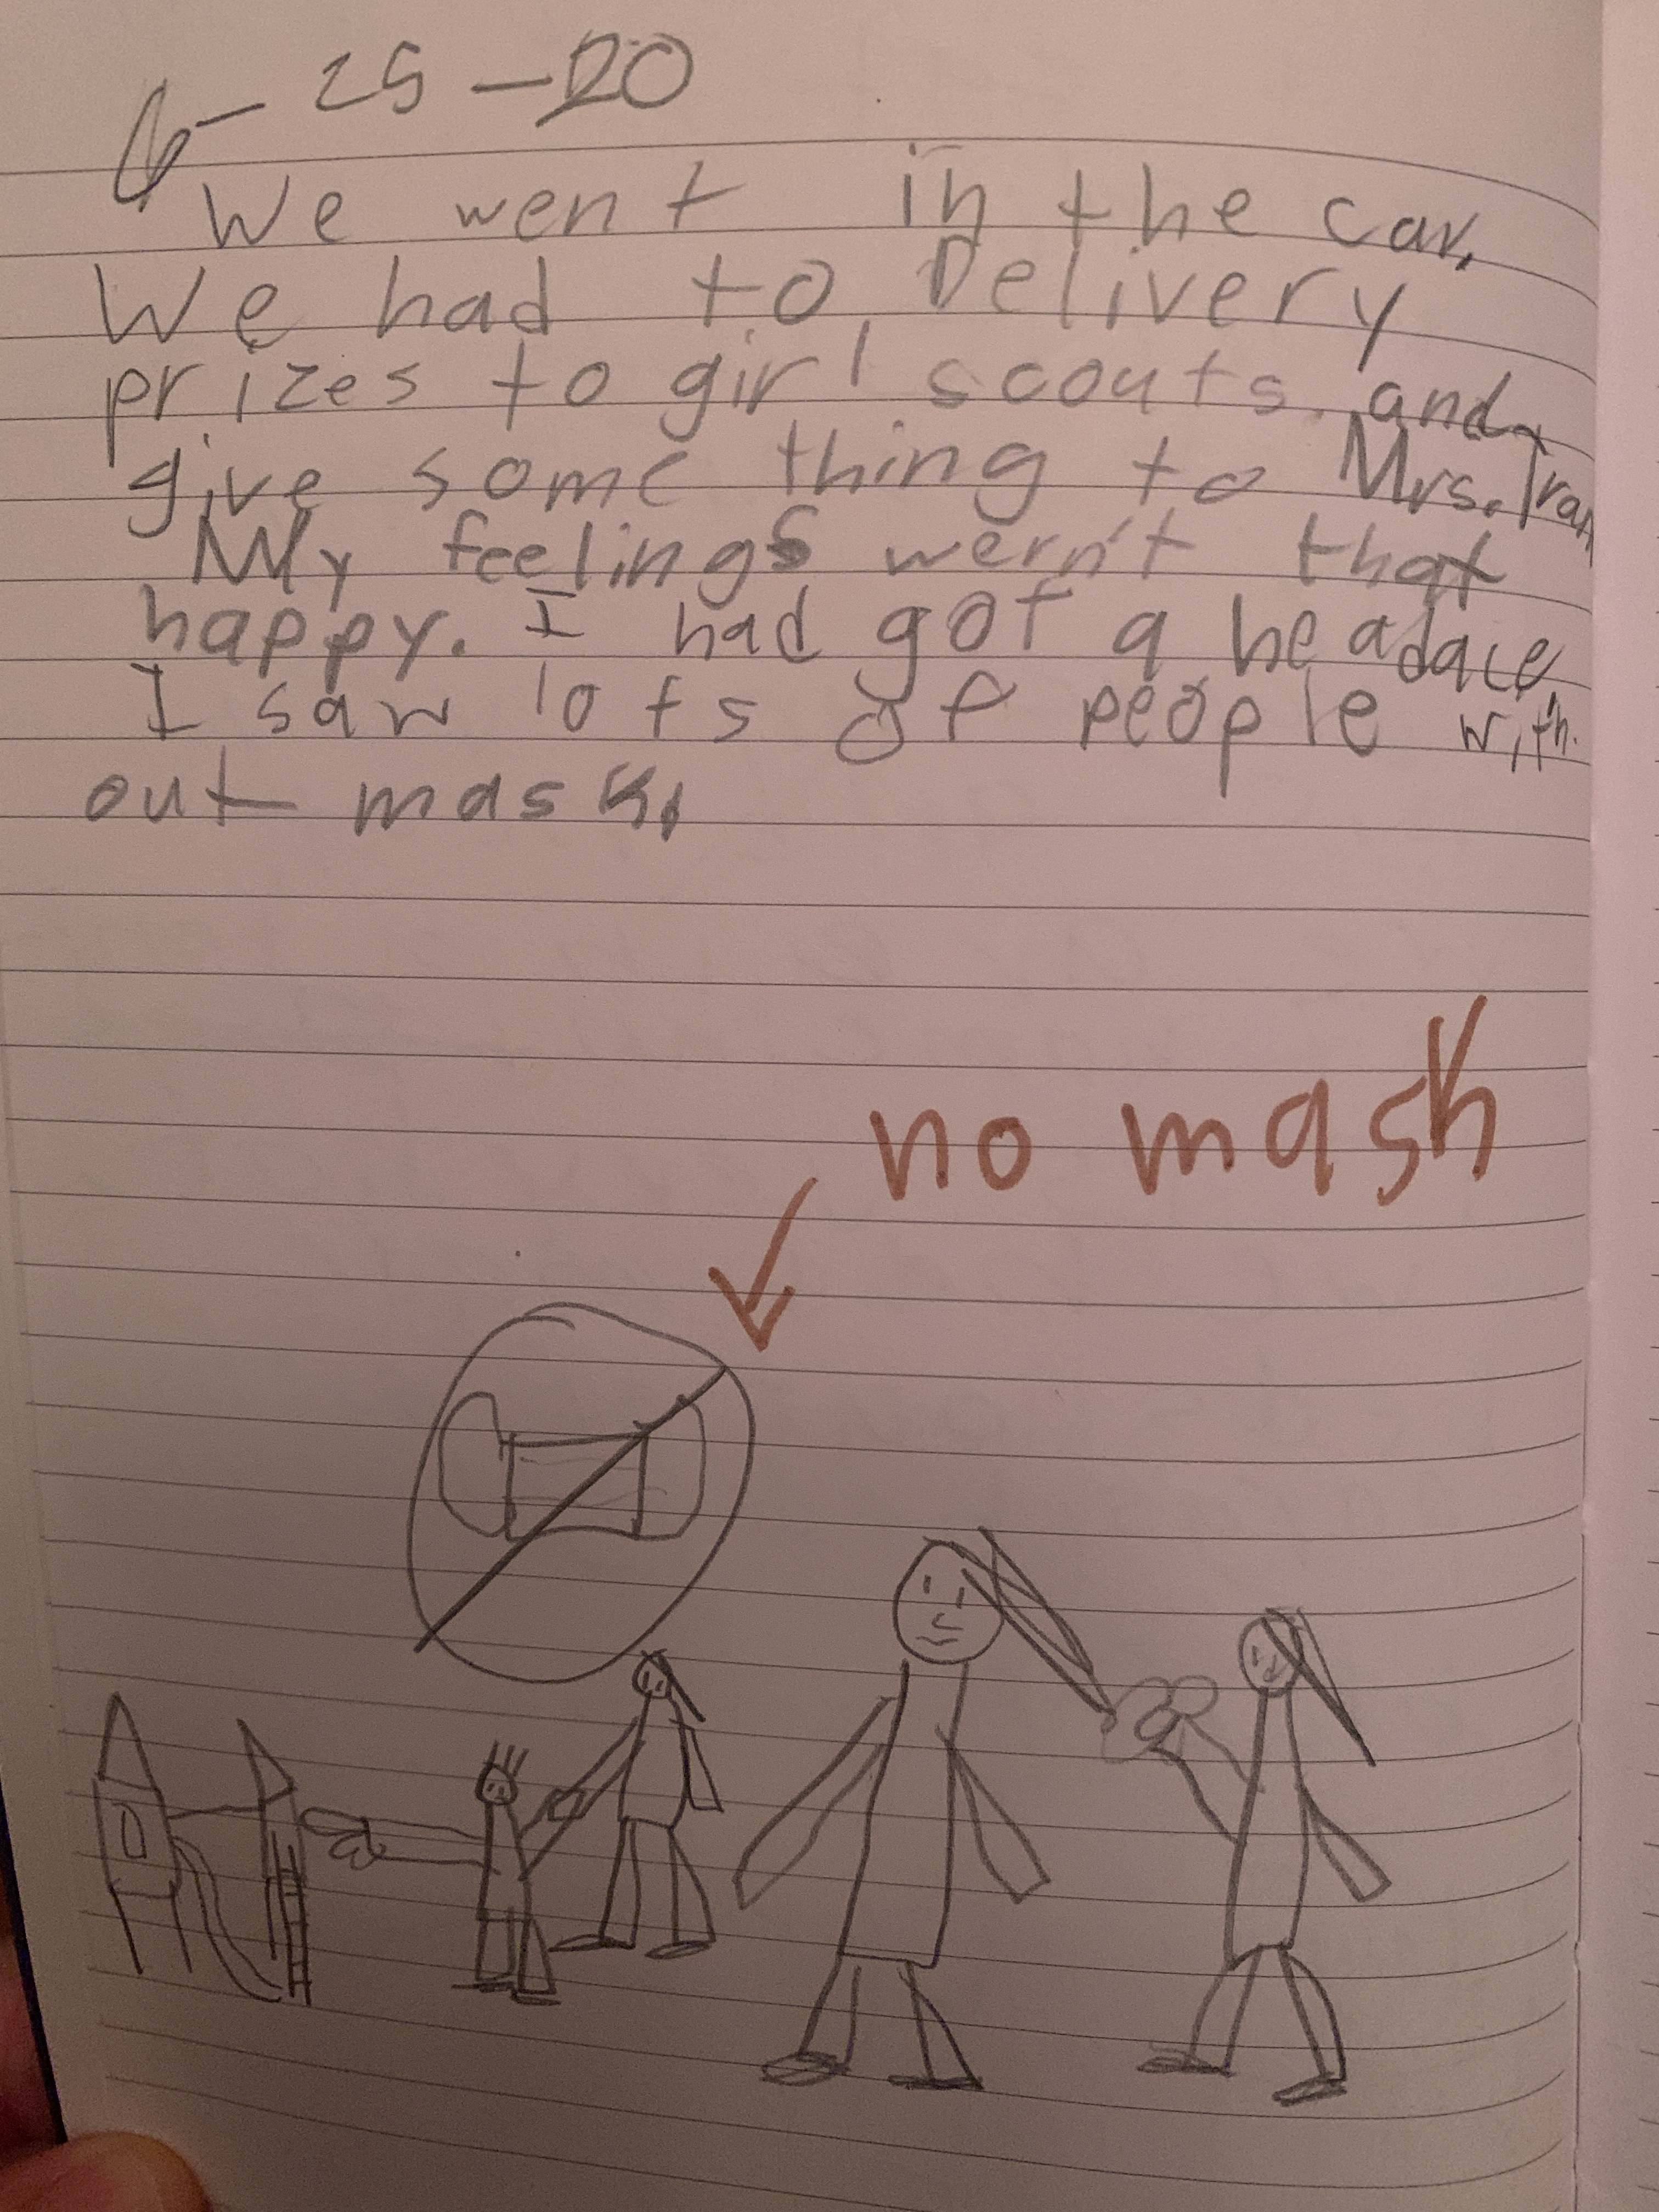 6-25-20
We went in the car.
We had to Delivery
prizes to girl scouts. and
give some thing to Mrs. Tran
My feelings wern't that
happy. I had got a headace.
I saw lots of people with
out mask.
no mask